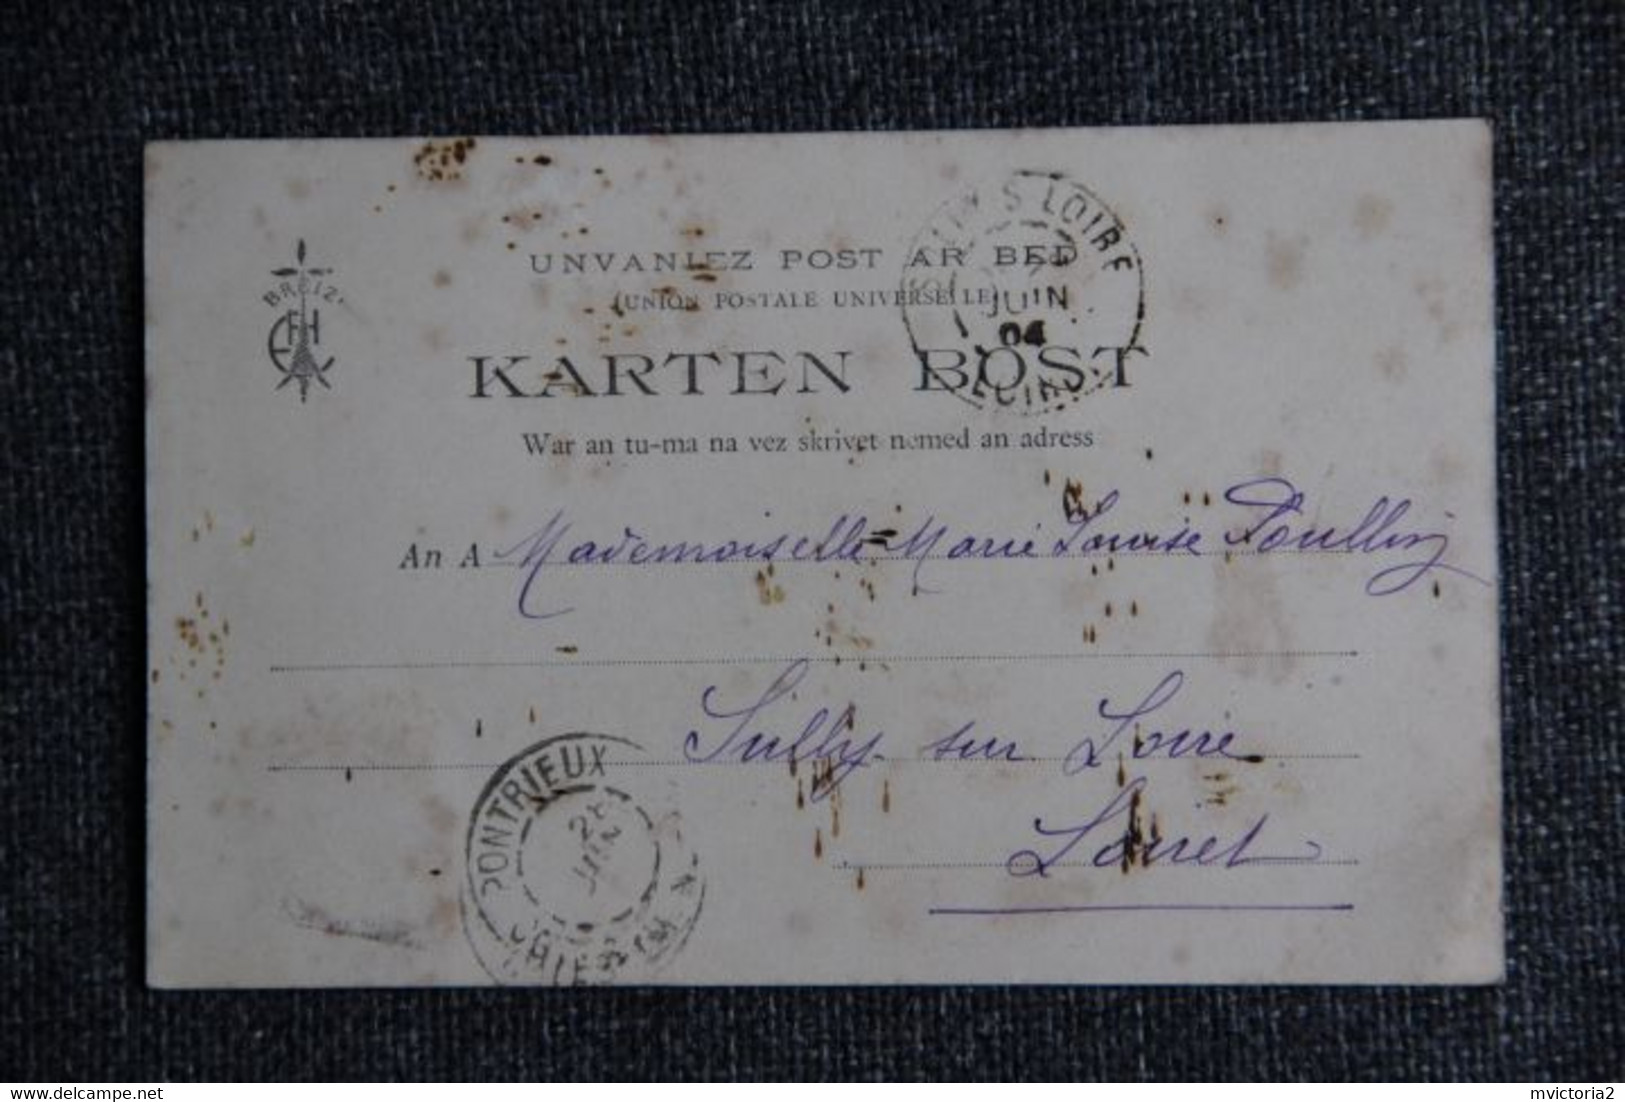 BREIZ
EH
UNVANIEZ POST AR BED
(UNION POSTALE UNIVERSELLE)
KARTEN BOST
War an tu-ma na vez skrivet nemed an adress
S LOIRE
JUIN
04
An A Mademoiselle Marie Louise Poullin
Sully sur Loire
Loiret
PONTRIEUX
26
JUIN
mvictoria2